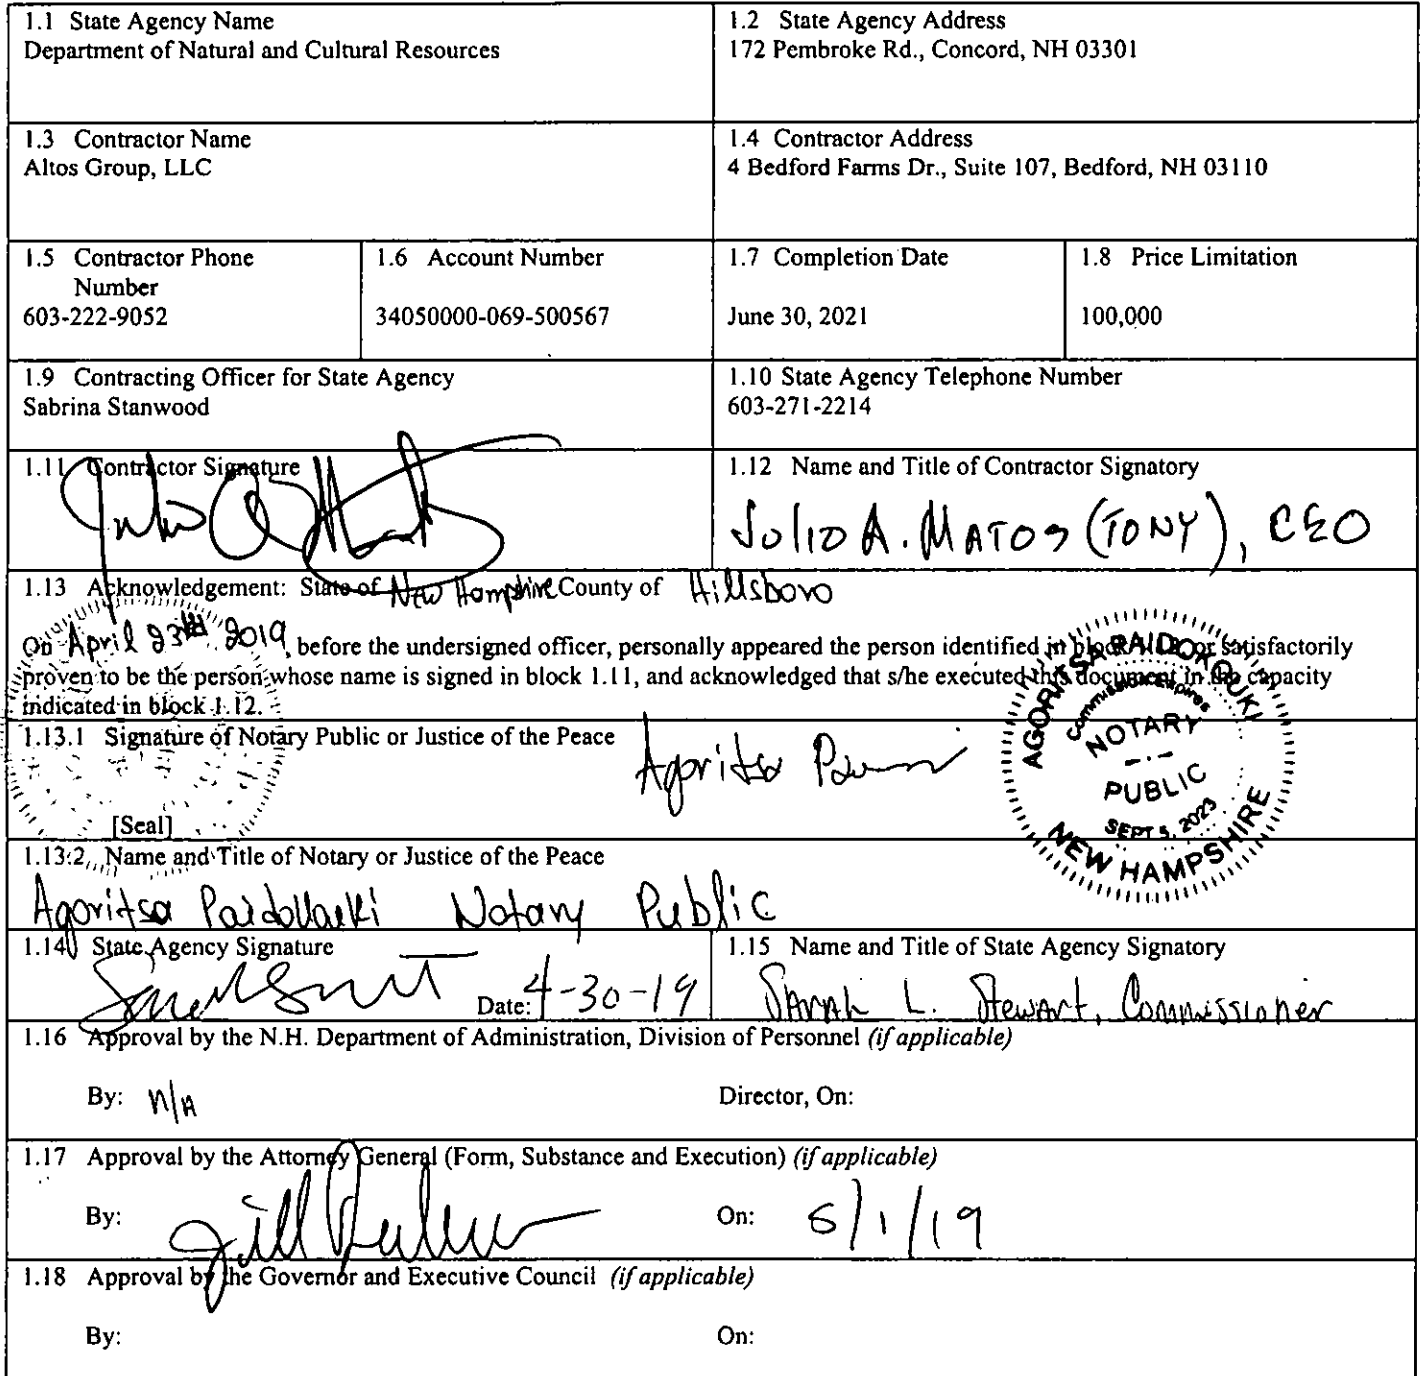 1.1 State Agency Name
Department of Natural and Cultural Resources
1.2 State Agency Address
172 Pembroke Rd., Concord, NH 03301
1.3 Contractor Name
Altos Group, LLC
1.4 Contractor Address
4 Bedford Farms Dr., Suite 107, Bedford, NH 03110
1.5 Contractor Phone
Number
603-222-9052
1.6 Account Number
34050000-069-500567
1.7 Completion Date
June 30, 2021
1.8 Price Limitation
100,000
1.9 Contracting Officer for State Agency
Sabrina Stanwood
1.10 State Agency Telephone Number
603-271-2214
1.11 Contractor Signature
1.12 Name and Title of Contractor Signatory
Julio A. Matos (Tony), CEO
1.13 Acknowledgement: State of New Hampshire County of Hillsboro
On April 23rd 2019, before the undersigned officer, personally appeared the person identified in block 1.12, or satisfactorily
proven to be the person whose name is signed in block 1.11, and acknowledged that s/he executed this document in the capacity
indicated in block 1.12.
1.13.1 Signature of Notary Public or Justice of the Peace
Agoritsa
[Seal]
AGORITSA PAIDOKOUKI
Commission Expires
NOTARY
PUBLIC
SEPT 5, 2023
NEW HAMPSHIRE
1.13.2 Name and Title of Notary or Justice of the Peace
Agoritsa Notary Public
1.14 State Agency Signature
Date: 4-30-19
1.15 Name and Title of State Agency Signatory
Sarah L. Stewart, Commissioner
1.16 Approval by the N.H. Department of Administration, Division of Personnel (if applicable)
By: N/A
Director, On:
1.17 Approval by the Attorney General (Form, Substance and Execution) (if applicable)
By: Jill
On: 5/1/19
1.18 Approval by the Governor and Executive Council (if applicable)
By:
On: